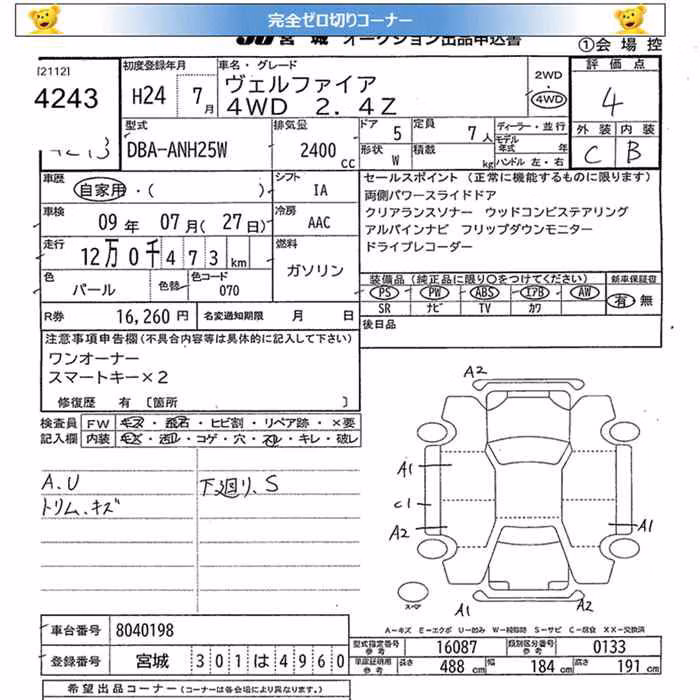 完全ゼロ切りコーナー
JU 宮城 オークション出品申込書 ①会場控
[2112]
4243
初度登録年月
H24 7月
車名・グレード
ヴェルファイア
4WD 2.4Z
2WD
4WD
評価点
4
外装 内装
C B
型式
DBA-ANH25W
排気量
2400 cc
ドア 5
定員 7人
形状 W
積載 kg
ディーラー・並行
モデル年式 年
ハンドル 左・右
車歴
自家用・( )
シフト
IA
車検
09年 07月(27日)
冷房
AAC
走行
12万0千473km
燃料
ガソリン
色
パール
色替
色コード
070
R券 16,260円
名変通知期限 月 日
セールスポイント (正常に機能するものに限ります)
両側パワースライドドア
クリアランスソナー ウッドコンビステアリング
アルパインナビ フリップダウンモニター
ドライブレコーダー
装備品 (純正品に限り○をつけてください)
PS PW ABS エアB AW
SR ナビ TV カワ
新車保証書
有 無
後日品
注意事項申告欄 (不具合内容等は具体的に記入して下さい)
ワンオーナー
スマートキー×2
修復歴 有 〔箇所
検査員記入欄
FW キズ・飛石・ヒビ割・リペア跡・×要
内装 コゲ・穴・キレ・破レ
A.U
トリム.キズ
下廻り.S
A2
A1
C1
A2
A1
A1
A2
スペア
A-キズ E-エクボ U-凹み W-補修跡 S-サビ C-腐食 XX-交換済
車台番号 8040198
登録番号 宮城 301は4960
型式指定番号 参考 16087
類別区分番号 参考 0133
車庫証明用 参考 長さ 488cm 幅 184cm 長さ 191cm
希望出品コーナー (コーナーは各会場により異なります。)